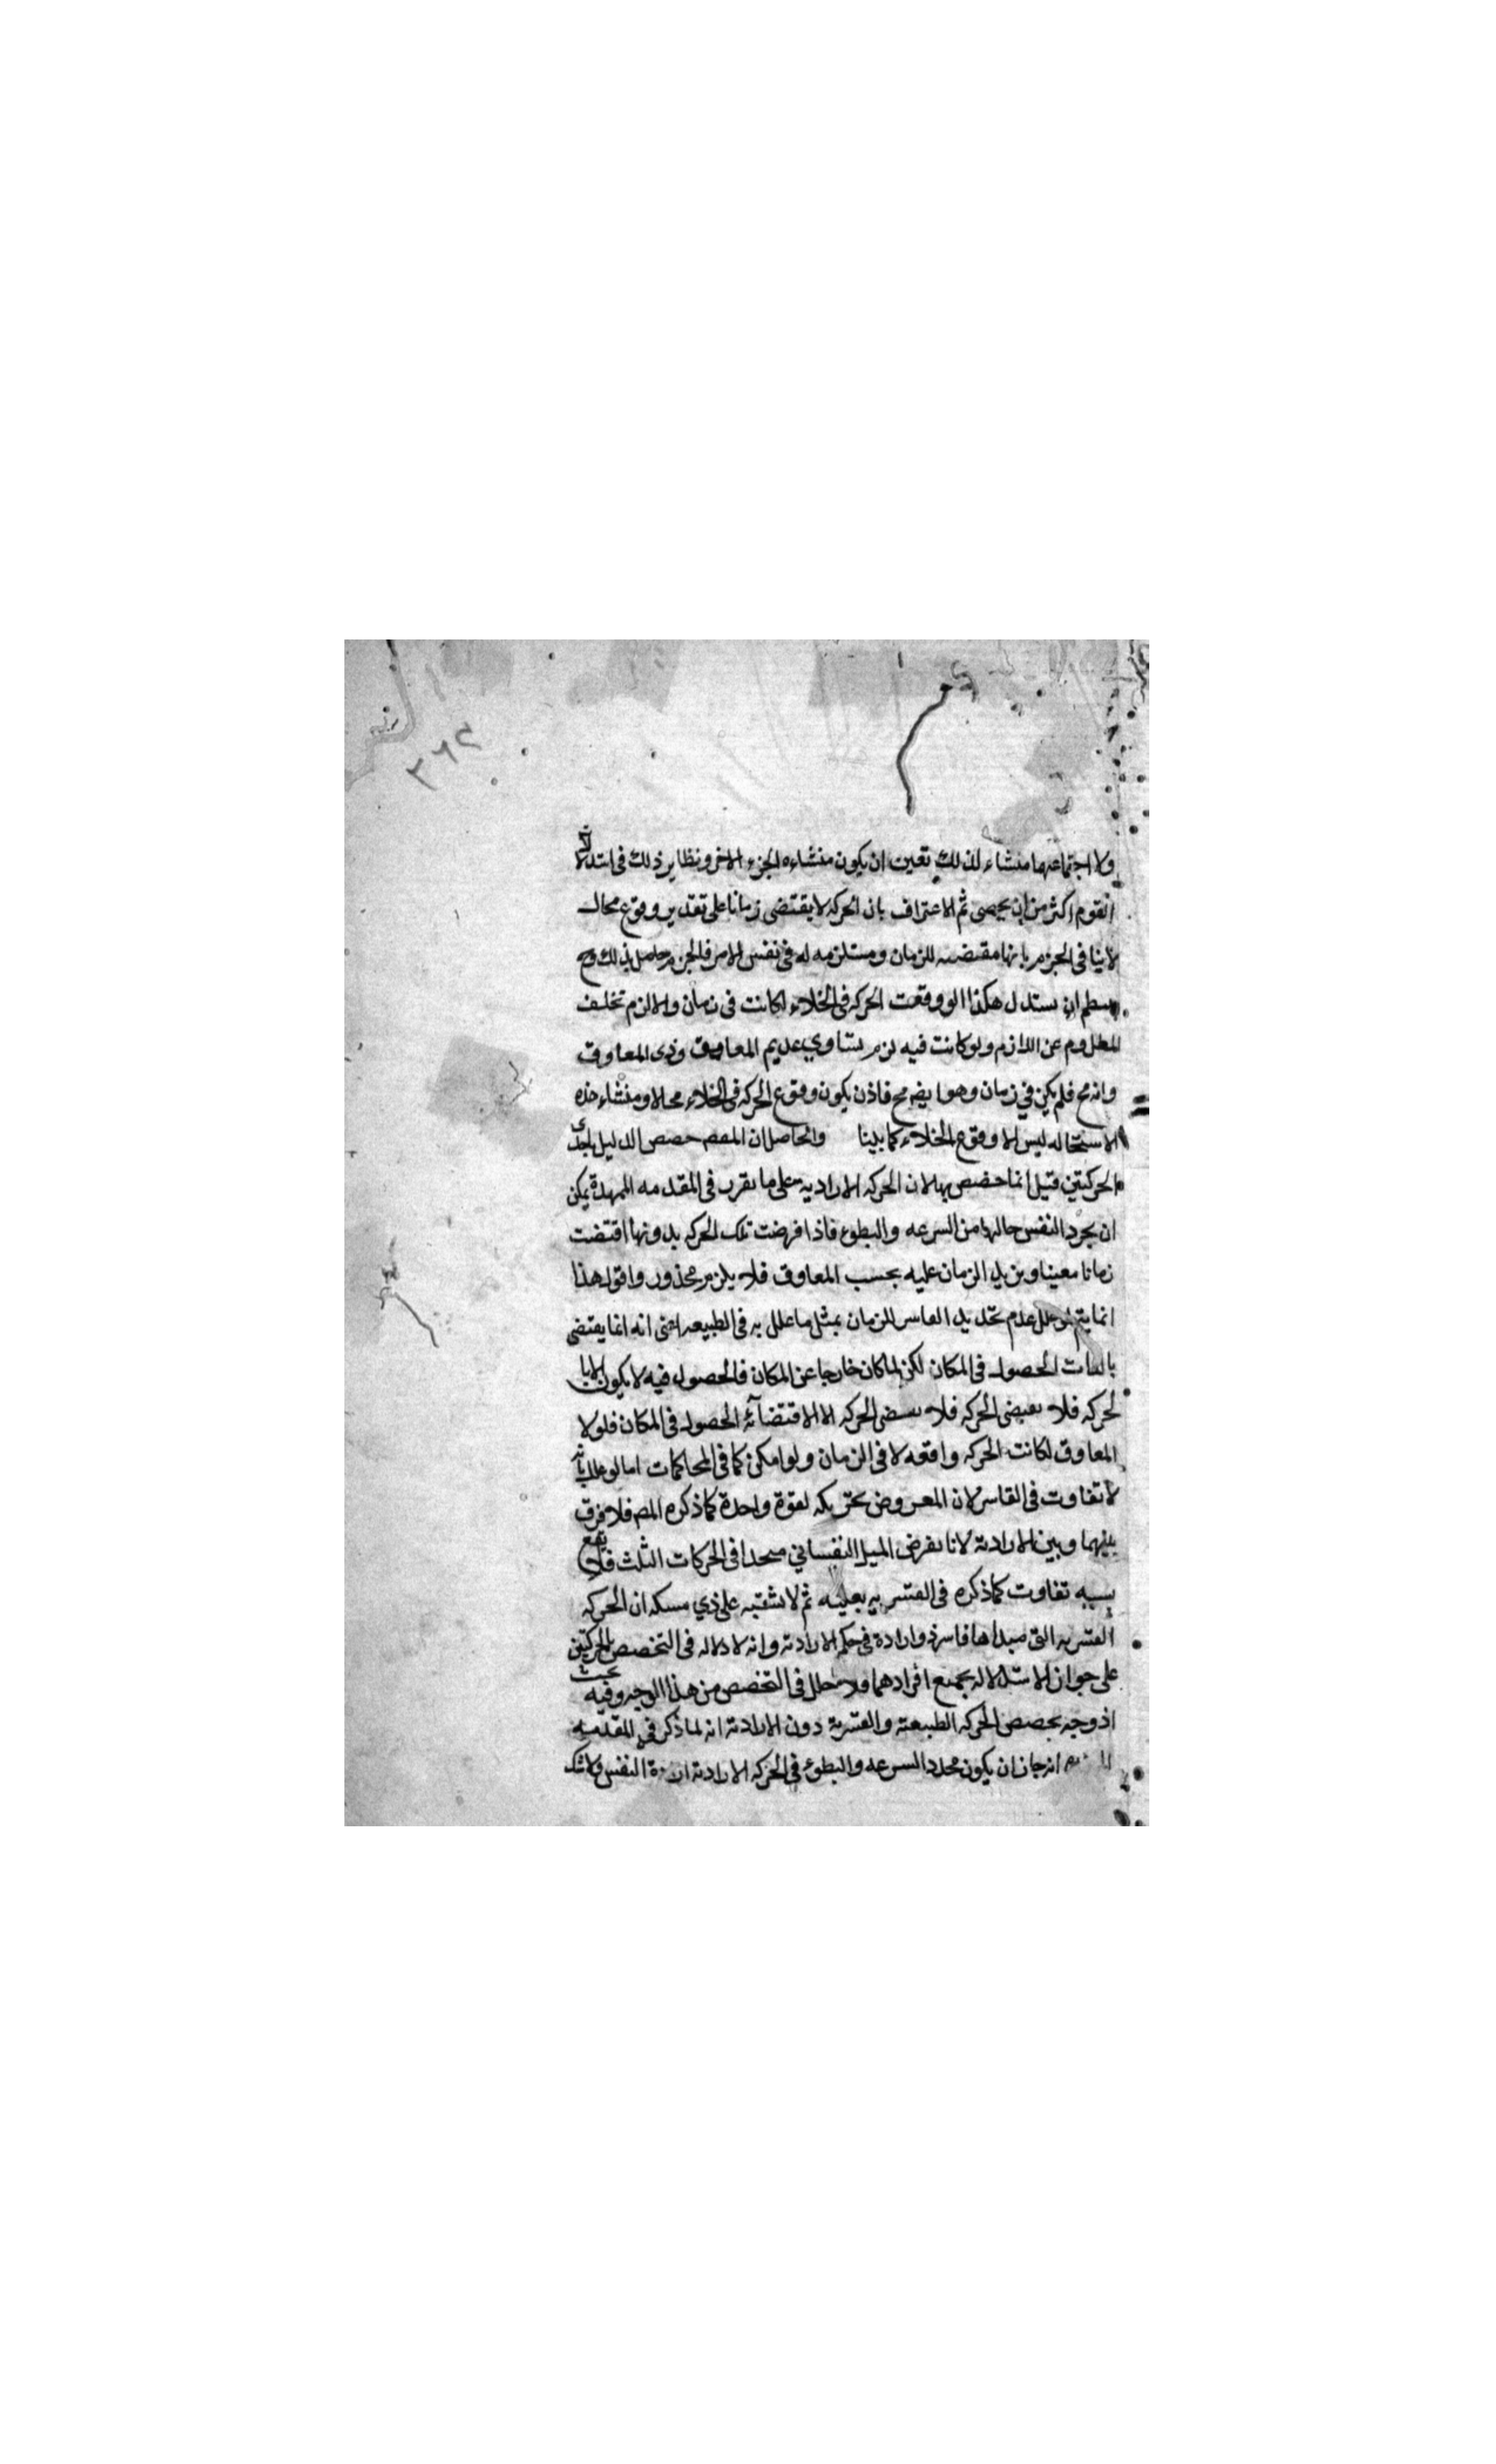 ٢٦٢
ولا اجتماعهما منشاء لذلك تعين ان يكون منشاءه الجزء الاخر ونظاير ذلك فى استدلالات
القوم اكثر من ان يحصى ثم الاعتراف بان الحركه لا يقتضى زمانا على تقدير وقوع محال
لا ينافى الجزم بانها مقتضيه للزمان ومستلزمه له فى نفس الامر فالجزم حاصل بذلك وح
ان يستدل هكذا لو وقعت الحركه فى الخلاء لكانت فى زمان والا لزم تخلف
الملزوم عن اللازم ولو كانت فيه لزم تساوي عديم المعاوق وذى المعاوق
وانه مح فلم يكن في زمان وهو ايضا مح فاذن يكون وقوع الحركه فى الخلاء محالا ومنشاء هذه
الاستحاله ليس الا وقوع الخلاء كما بينا والحاصل ان المصم خصص الدليل باحدى
الحركتين قيل انما خصص بها لان الحركه الاراديه على ما تقرر فى المقدمه الممهدة يمكن
ان يحدد النفس حالها من السرعه والبطوء فاذا فرضت تلك الحركه بدونها اقتضت
زمانا معينا ويزيد الزمان عليه بحسب المعاوق فلا يلزم محذور واقول هذا
انما يتم لو علل عدم تحديد القاسر للزمان بمثل ما علل به فى الطبيعه اعنى انه انما يقتضى
بالذات الحصول فى المكان لكن لما كان خارجا عن المكان فالحصول فيه لا يكون الا با
لحركه فلا يقتضى الحركه فلا يقتضى الحركه الا لاقتضآئه الحصول فى المكان فلولا
المعاوق لكانت الحركه واقعه لا فى الزمان ولو امكن كما فى المحاكمات اما لو علل بانه
لا تفاوت فى القاسر لان المعروض تحريكه لقوة واحدة كما ذكره المصم فلا فرق
بينهما وبين الارادية لانا نفرض الميل النفسانى متحدا فى الحركات الثلث فلا يقع
بسببه تفاوت كما ذكره فى القسريه بعينه ثم لا يشتبه على ذي مسكه ان الحركه
القسريه التى مبداها قاسر ذو ارادة فى حكم الارادية وانه لا دلاله فى التخصيص بالحركتين
على جواز الاستدلال بجميع افرادهما ولا خلل فى التخصيص من هذا الوجه وفيه بحث
اذ وجه تخصيص الحركه الطبيعية والقسرية دون الارادية انه لما ذكر فى المقدمه
انه جاز ان يكون محدد السرعه والبطوء فى الحركه الارادية ارادة النفس ولا شك